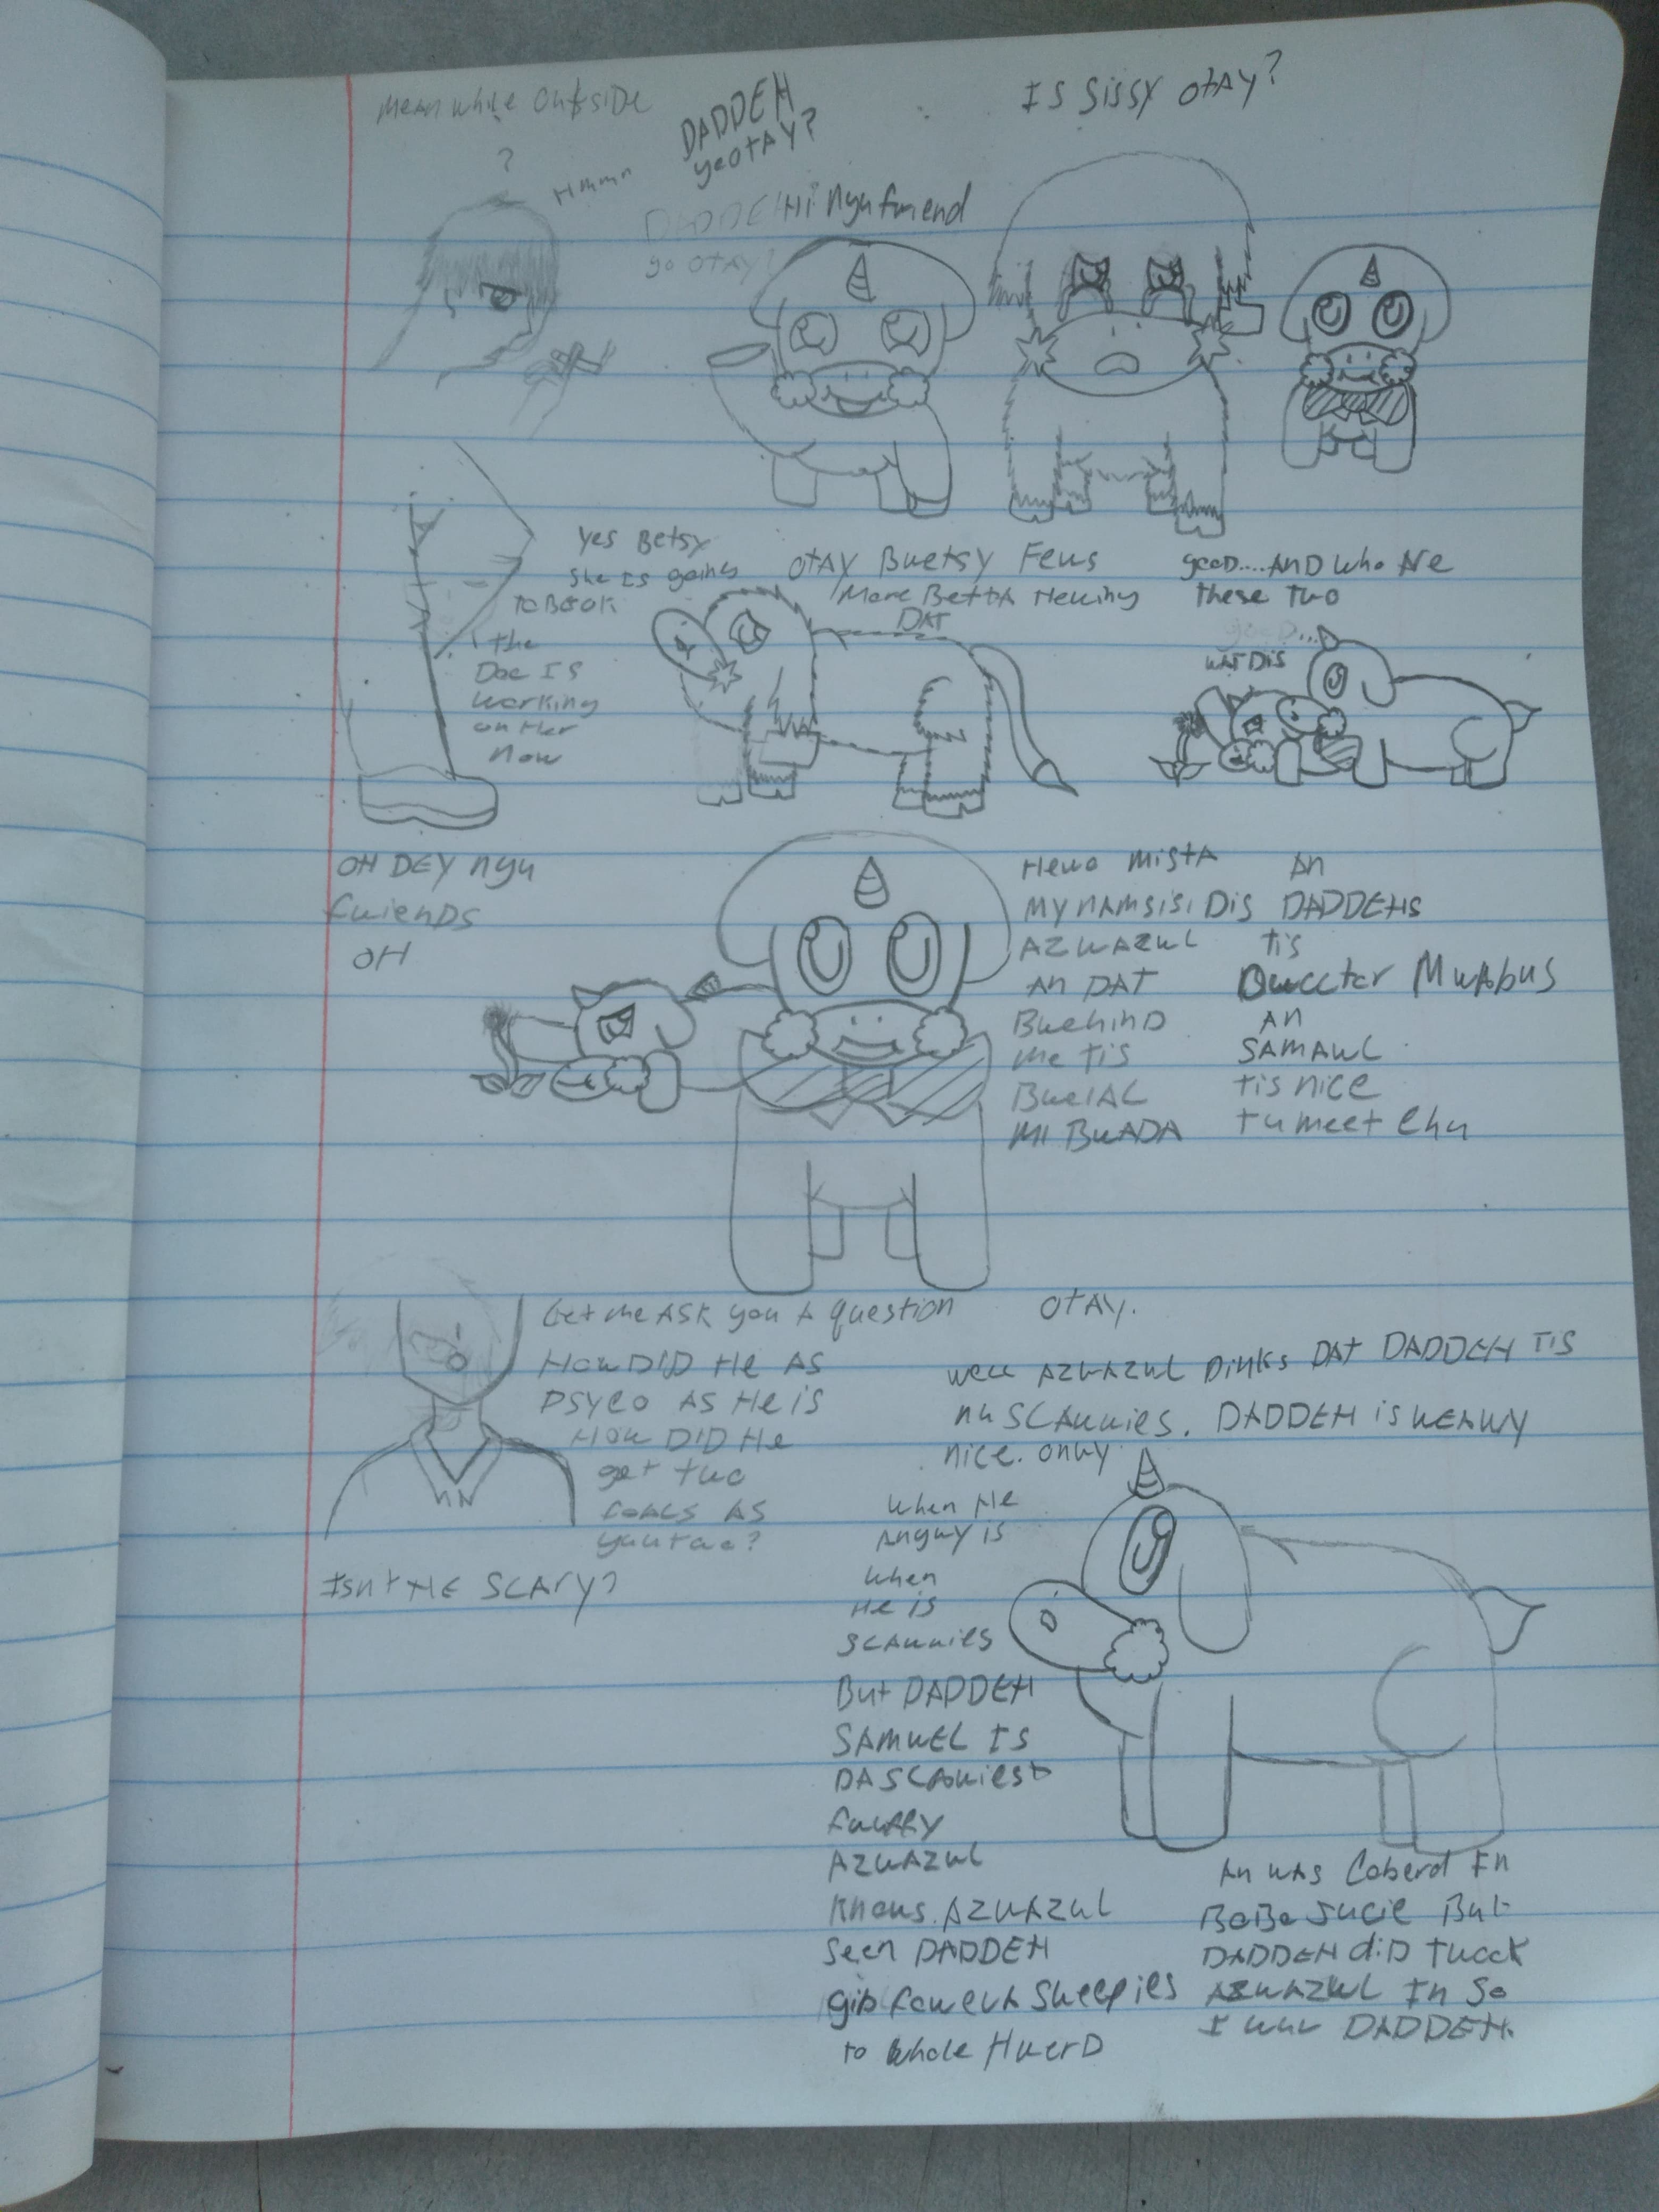 Meanwhile outside
?
Hmmn
DADDEH
yeotAY?
IS Sissy otAy?
DADDEH
yo otAY?
Hi nyu fwiend
Yes Betsy
She Is going
To Be ok
the
Doc IS
working
on Her
now
otAY Buetsy Fews
More BettA Hewing
DAT
gooD....AND who Are
these two
gooD...
wAT Dis
OH DEY nyu
fwienDS
OH
Hewo mistA
My nAmsisi Dis
AZuAZuL
An DAT
BuehinD
me tis
BueIAL
MI BuADA
An
DADDEHS
tis
Duccter MwAbus
An
SAMAWL
tis nice
tu meet Chu
Let me ASk you A question
How DID He AS
PSYCO AS He is
How DID He
get two
AS
you two?
Isn't HE SCARY?
OtAY.
well AZuAZuL Dinks DAt DADDEH TIS
nu SCAwwies. DADDEH is WEAWY
nice. onwy
when He
Angwy is
when
He is
SCAwwies
But DADDEH
SAMUEL IS
DA SCAwiest
fwuffy
AZuAZuL
Knows. AZuAZuL
Seen DADDEH
gib fowevA Sweepies
to whole HuerD
An wAs Coberd In
BoBo Jucie But
DADDEH diD tucck
AZuAZuL In So
I wuv DADDEH.